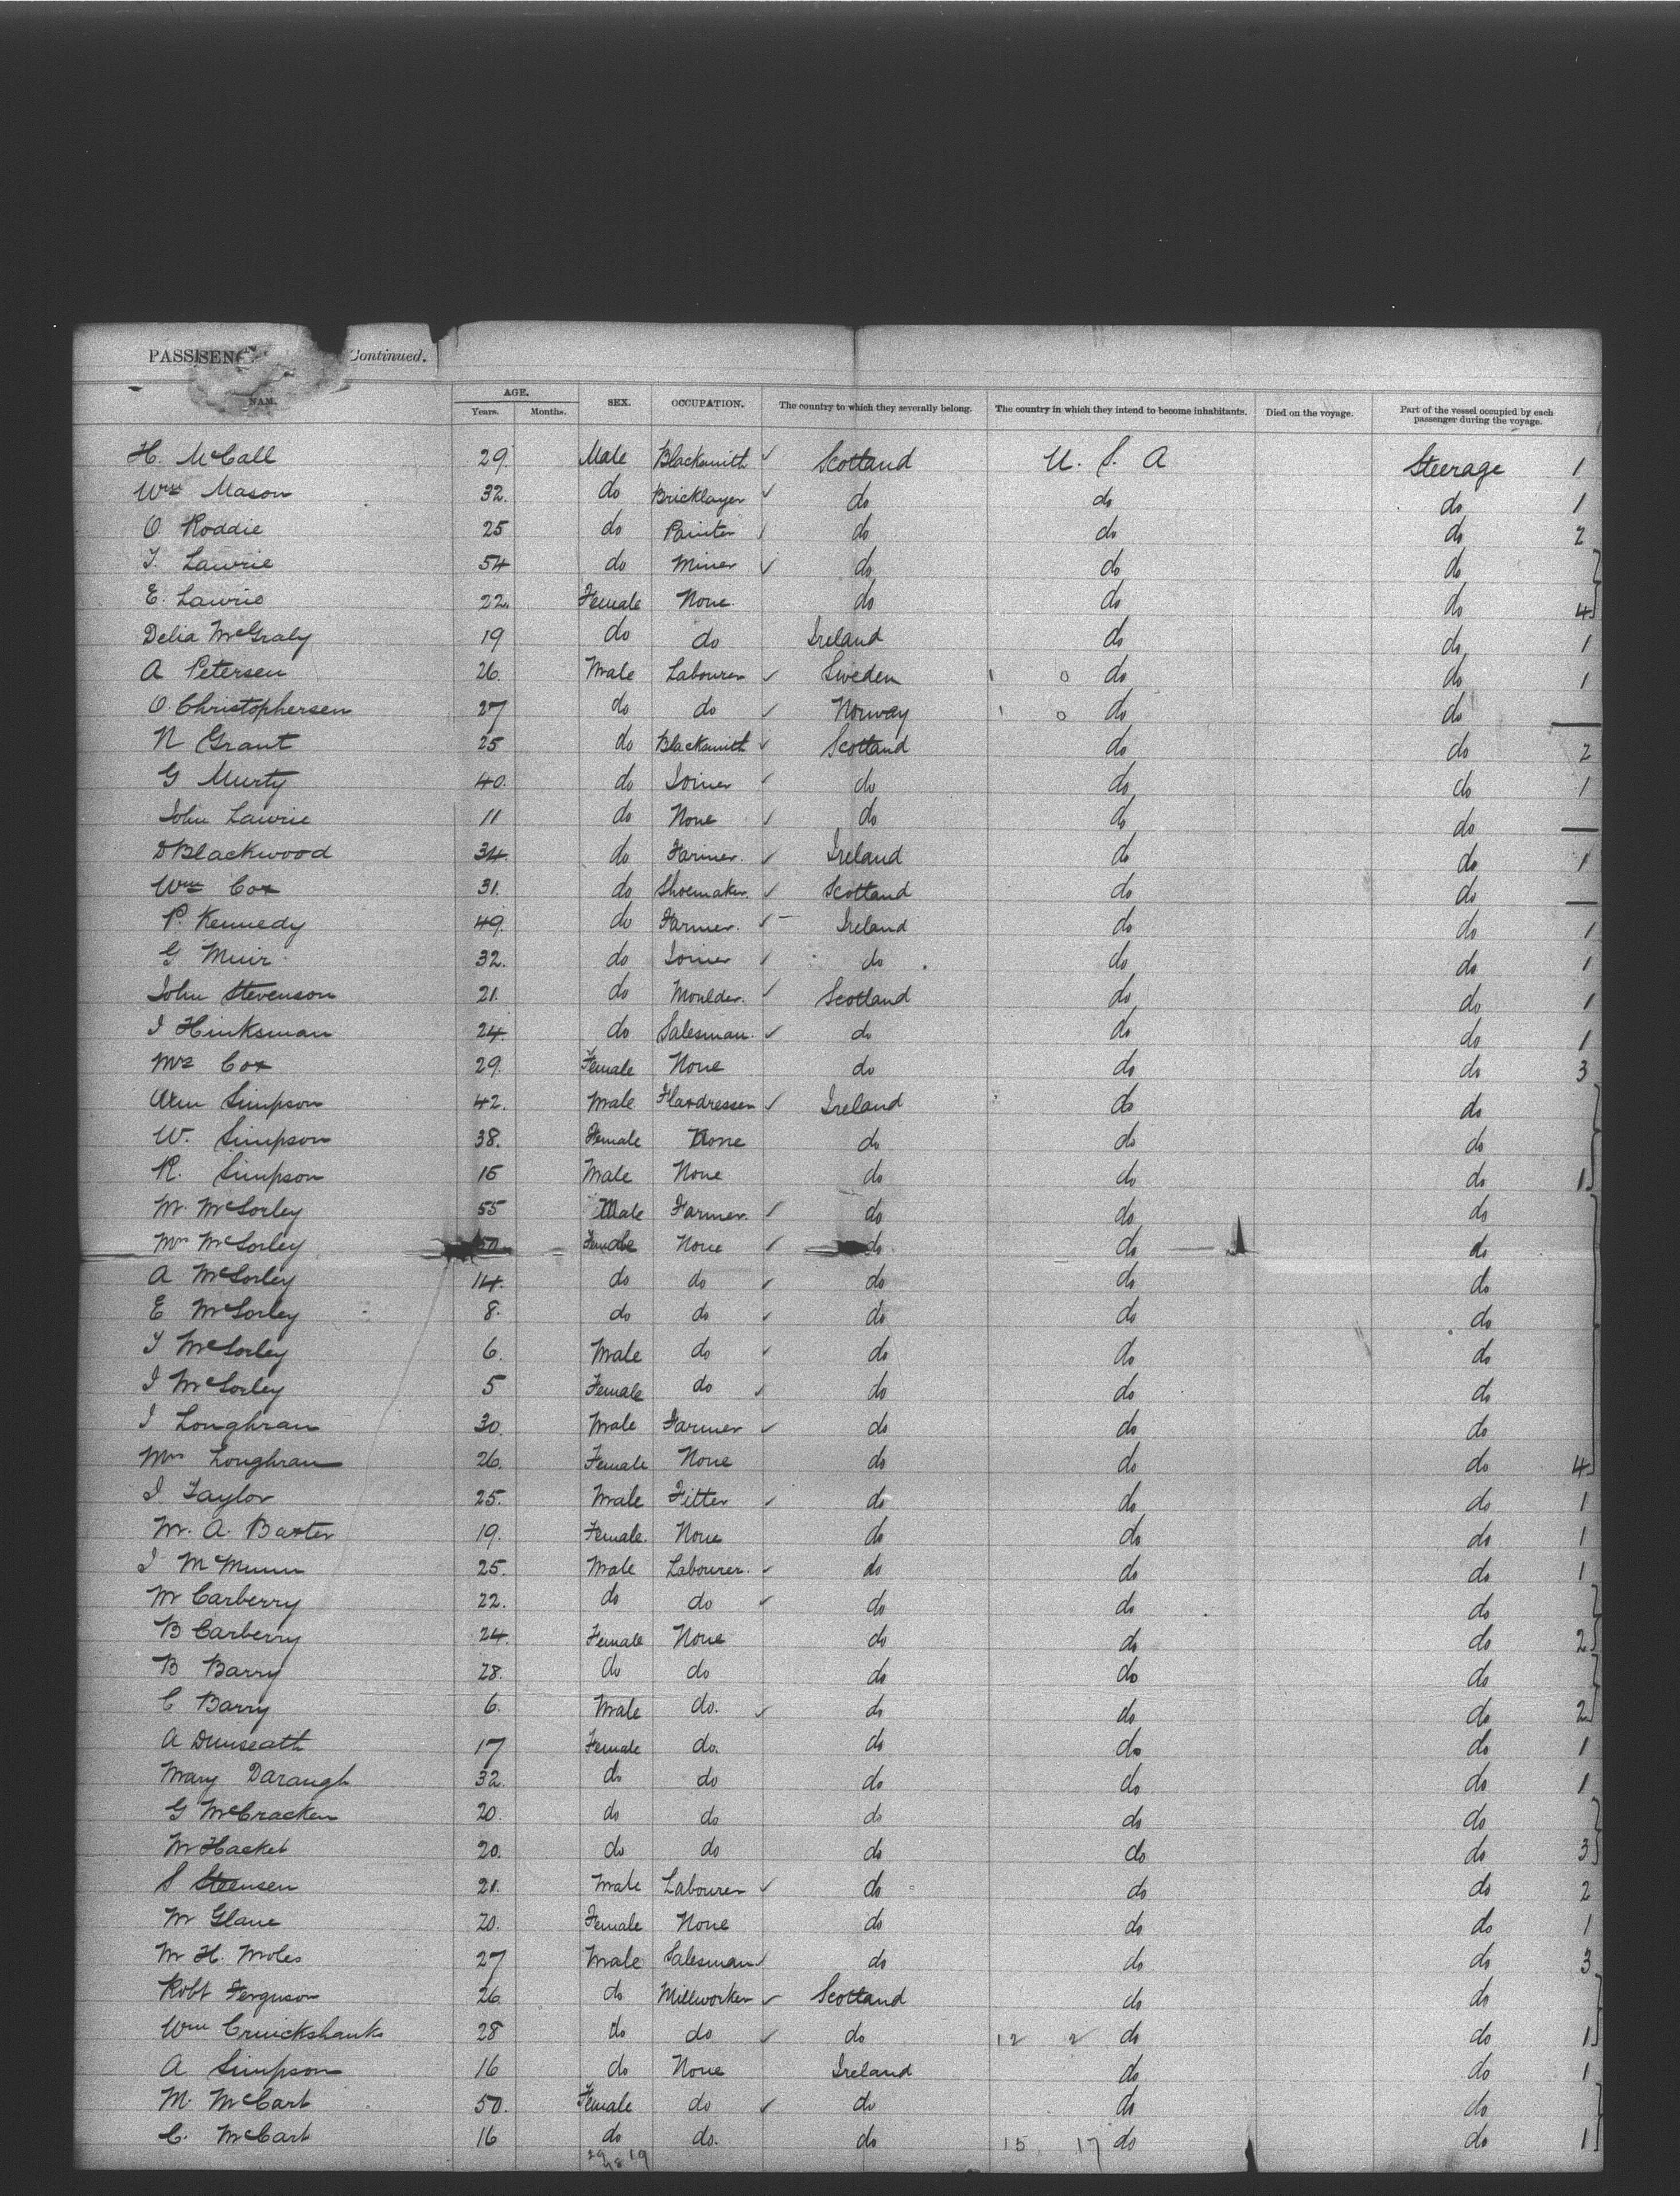 PASSSENG Continued.
NAM. AGE. SEX. OCCUPATION. The country to which they severally belong. The country in which they intend to become inhabitants. Died on the voyage. Part of the vessel occupied by each passenger during the voyage.
Years. Months.
H. McCall 29. Male Blacksmith ✓ Scotland U. S. A Steerage 1
Wm Mason 32. do Bricklayer ✓ do do do 1
O Roddie 25 do Painter do do do 2
T. Lawrie 54 do Miner ✓ do do do
E. Lawrie 22. Female None. do do do 4
Delia McGraly 19 do do Ireland do do 1
A Petersen 26 Male Labourer ✓ Sweden 1 0 do do 1
O Christophersen 27 do do ✓ Norway 1 0 do do —
N Grant 25 do Blacksmith ✓ Scotland do do 2
G Murty 40. do Joiner ✓ do do do 1
John Lawrie 11 do None ✓ do do do —
D Blackwood 34. do Farmer. ✓ Ireland do do 1
Wm Cox 31. do Shoemaker. ✓ Scotland do do —
P. Kennedy 49. do Farmer. ✓ Ireland do do 1
G Muir 32. do Joiner ✓ do do do 1
John Stevenson 21. do Moulder. ✓ Scotland do do 1
J Hinksman 24. do Salesman. ✓ do do do 1
Mrs Cox 29. Female None do do do 3
Wm Simpson 42. Male Flaxdresser ✓ Ireland do do
W. Simpson 38. Female None do do do
R. Simpson 15 Male None do do do 1
M. McSorley 55 Male Farmer. ✓ do do do
Mrs McSorley Female None ✓ do do do
A McSorley 14. do do ✓ do do do
E McSorley 8. do do ✓ do do do
T McSorley 6. Male do ✓ do do do
J McSorley 5 Female do ✓ do do do
J Loughran 30. Male Farmer ✓ do do do
Mrs Loughran 26. Female None do do do 4
J Taylor 25. Male Fitter ✓ do do do 1
M. A. Baxter 19. Female. None do do do 1
J McMunn 25. Male Labourer. ✓ do do do 1
M Carberry 22. do do ✓ do do do
B Carberry 24. Female None do do do 2
B Barry 28. do do do do do
C Barry 6. Male do. ✓ do do do 2
A Dunseath 17 Female do. do do do 1
Mary Daraugh 32. do do do do do 1
G McCracken 20. do do do do do
M Hacket 20. do do do do do 3
S Steensen 21. Male Labourer ✓ do do do 2
M Glane 20. Female None do do do 1
M H. Moles 27 Male Salesman ✓ do do do 3
Robt Ferguson 26 do Millworker ✓ Scotland do do
Wm Cruickshanks 28 do do ✓ do 12 2 do do 1
A Simpson 16 do None Ireland do do 1
M. McCart 50. Female do ✓ do do do
C. McCart 16 do do. do 15 17 do do 1
29 19